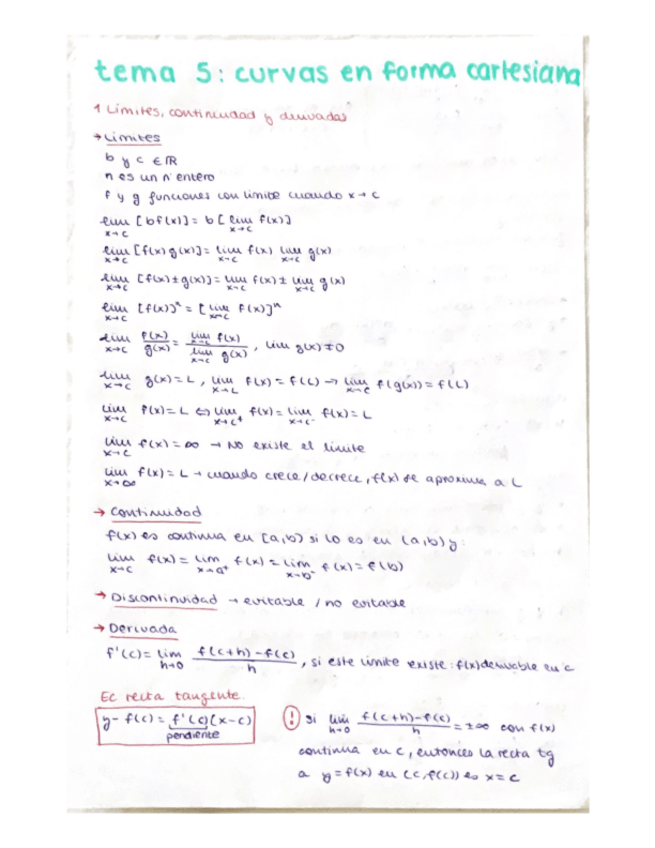 tema 5: curvas en forma cartesiana
1 Límites, continuidad y derivadas
→ Límites
b y c ∈ ℝ
n es un nº entero
f y g funciones con límite cuando x→c
lim x→c [bf(x)] = b[lim x→c f(x)]
lim x→c [f(x)g(x)] = lim x→c f(x) lim x→c g(x)
lim x→c [f(x)±g(x)] = lim x→c f(x) ± lim x→c g(x)
lim x→c [f(x)]ⁿ = [lim x→c f(x)]ⁿ
lim x→c f(x)/g(x) = lim x→c f(x) / lim x→c g(x), lim g(x)≠0
lim x→c g(x) = L, lim x→L f(x) = f(L) → lim x→c f(g(x)) = f(L)
lim x→c f(x) = L ⇔ lim x→c⁺ f(x) = lim x→c⁻ f(x) = L
lim x→c f(x) = ∞ → No existe el límite
lim x→∞ f(x) = L → cuando crece/decrece, f(x) se aproxima a L
→ Continuidad
f(x) es continua en [a,b] si lo es en (a,b) y:
lim x→c f(x) = lim x→a⁺ f(x) = lim x→b⁻ f(x) = f(b)
→ Discontinuidad → evitable / no evitable
→ Derivada
f'(c) = lim h→0 f(c+h)-f(c) / h, si este límite existe: f(x) derivable en c
Ec recta tangente.
y-f(c) = f'(c)(x-c)
pendiente
! si lim h→0 f(c+h)-f(c) / h = ±∞ con f(x)
continua en c, entonces la recta tg
a y=f(x) en (c,f(c)) es x=c